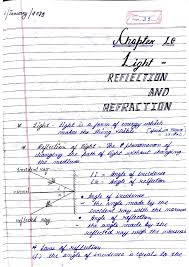 Chapter 10
Light -
REFLECTION
AND
REFRACTION
* Light - Light is a form of energy which
makes the thing visible
* Reflection of light - The phenomenon of
changing the path of light without changing
the medium
incident ray
normal
reflected ray
∠i = Angle of incidence
∠r = Angle of reflection
* Angle of incidence
the angle made by the
incident ray with the normal
* Angle of reflection
the angle made by the
reflected ray with the normal
* Laws of reflection
(i) the angle of incidence is equal to the